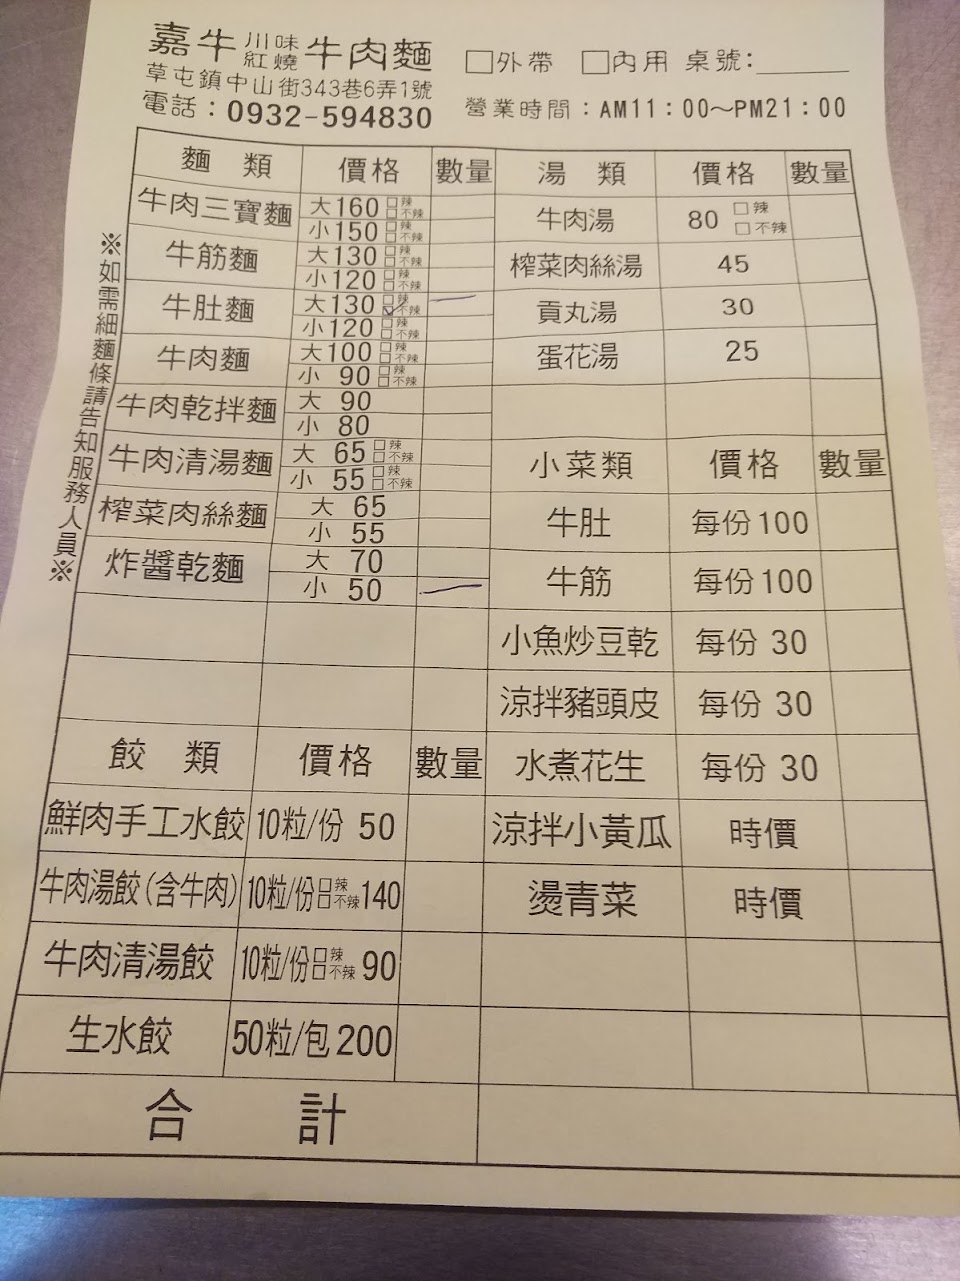 嘉牛 川味 紅燒 牛肉麵 □外帶 □內用 桌號:
草屯鎮中山街343巷6弄1號
電話：0932-594830 營業時間：AM11：00～PM21：00
※如需細麵條請告知服務人員※
麵 類 價格 數量
牛肉三寶麵 大 160 □辣 □不辣
小 150 □辣 □不辣
牛筋麵 大 130 □辣 □不辣
小 120 □辣 □不辣
牛肚麵 大 130 □辣 ☑不辣 一
小 120 □辣 □不辣
牛肉麵 大 100 □辣 □不辣
小 90 □辣 □不辣
牛肉乾拌麵 大 90
小 80
牛肉清湯麵 大 65 □辣 □不辣
小 55 □辣 □不辣
榨菜肉絲麵 大 65
小 55
炸醬乾麵 大 70
小 50 一
餃 類 價格 數量
鮮肉手工水餃 10粒/份 50
牛肉湯餃(含牛肉) 10粒/份 □辣 □不辣 140
牛肉清湯餃 10粒/份 □辣 □不辣 90
生水餃 50粒/包 200
湯 類 價格 數量
牛肉湯 80 □辣 □不辣
榨菜肉絲湯 45
貢丸湯 30
蛋花湯 25
小菜類 價格 數量
牛肚 每份 100
牛筋 每份 100
小魚炒豆乾 每份 30
涼拌豬頭皮 每份 30
水煮花生 每份 30
涼拌小黃瓜 時價
燙青菜 時價
合 計